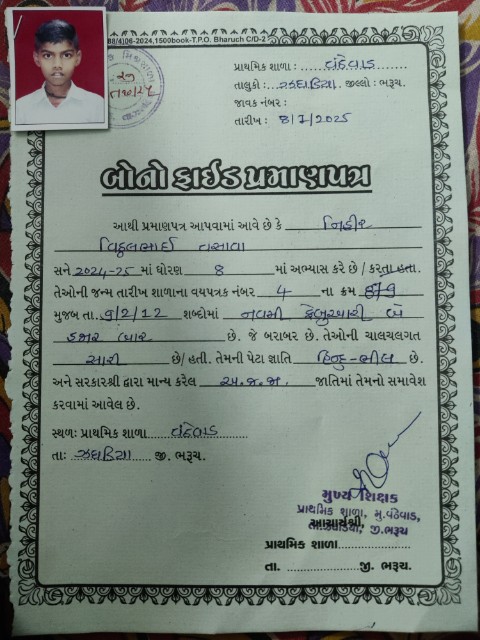 8/4)06-2024,1500book-T.P.O. Bharuch C/D-2
પ્રાથમિક શાળા : વંઠેવાડ
તાલુકો : ઝઘડિયા જીલ્લો : ભરૂચ.
જાવક નંબર :
તારીખ : 8/7/2025
બોનો ફાઈડ પ્રમાણપત્ર
આથી પ્રમાણપત્ર આપવામાં આવે છે કે મિહીર
વિઠ્ઠલભાઈ વસાવા
સને 2024-25 માં ધોરણ 8 માં અભ્યાસ કરે છે / કરતા હતા.
તેઓની જન્મ તારીખ શાળાના વયપત્રક નંબર 4 ના ક્રમ 819
મુજબ તા. 9/2/12 શબ્દોમાં નવમી ફેબ્રુઆરી બે
હજાર બાર છે. જે બરાબર છે. તેઓની ચાલચલગત
સારી છે/ હતી. તેમની પેટા જ્ઞાતિ હિન્દુ-ભીલ છે.
અને સરકારશ્રી દ્વારા માન્ય કરેલ અ.જ.જા. જાતિમાં તેમનો સમાવેશ
કરવામાં આવેલ છે.
સ્થળ: પ્રાથમિક શાળા વંઠેવાડ
તા: ઝઘડિયા જી. ભરૂચ.
મુખ્ય શિક્ષક
પ્રાથમિક શાળા, મુ.વંઠેવાડ,
તા.ઝઘડિયા, જી.ભરૂચ
આચાર્યશ્રી,
પ્રાથમિક શાળા
તા. જી. ભરૂચ.